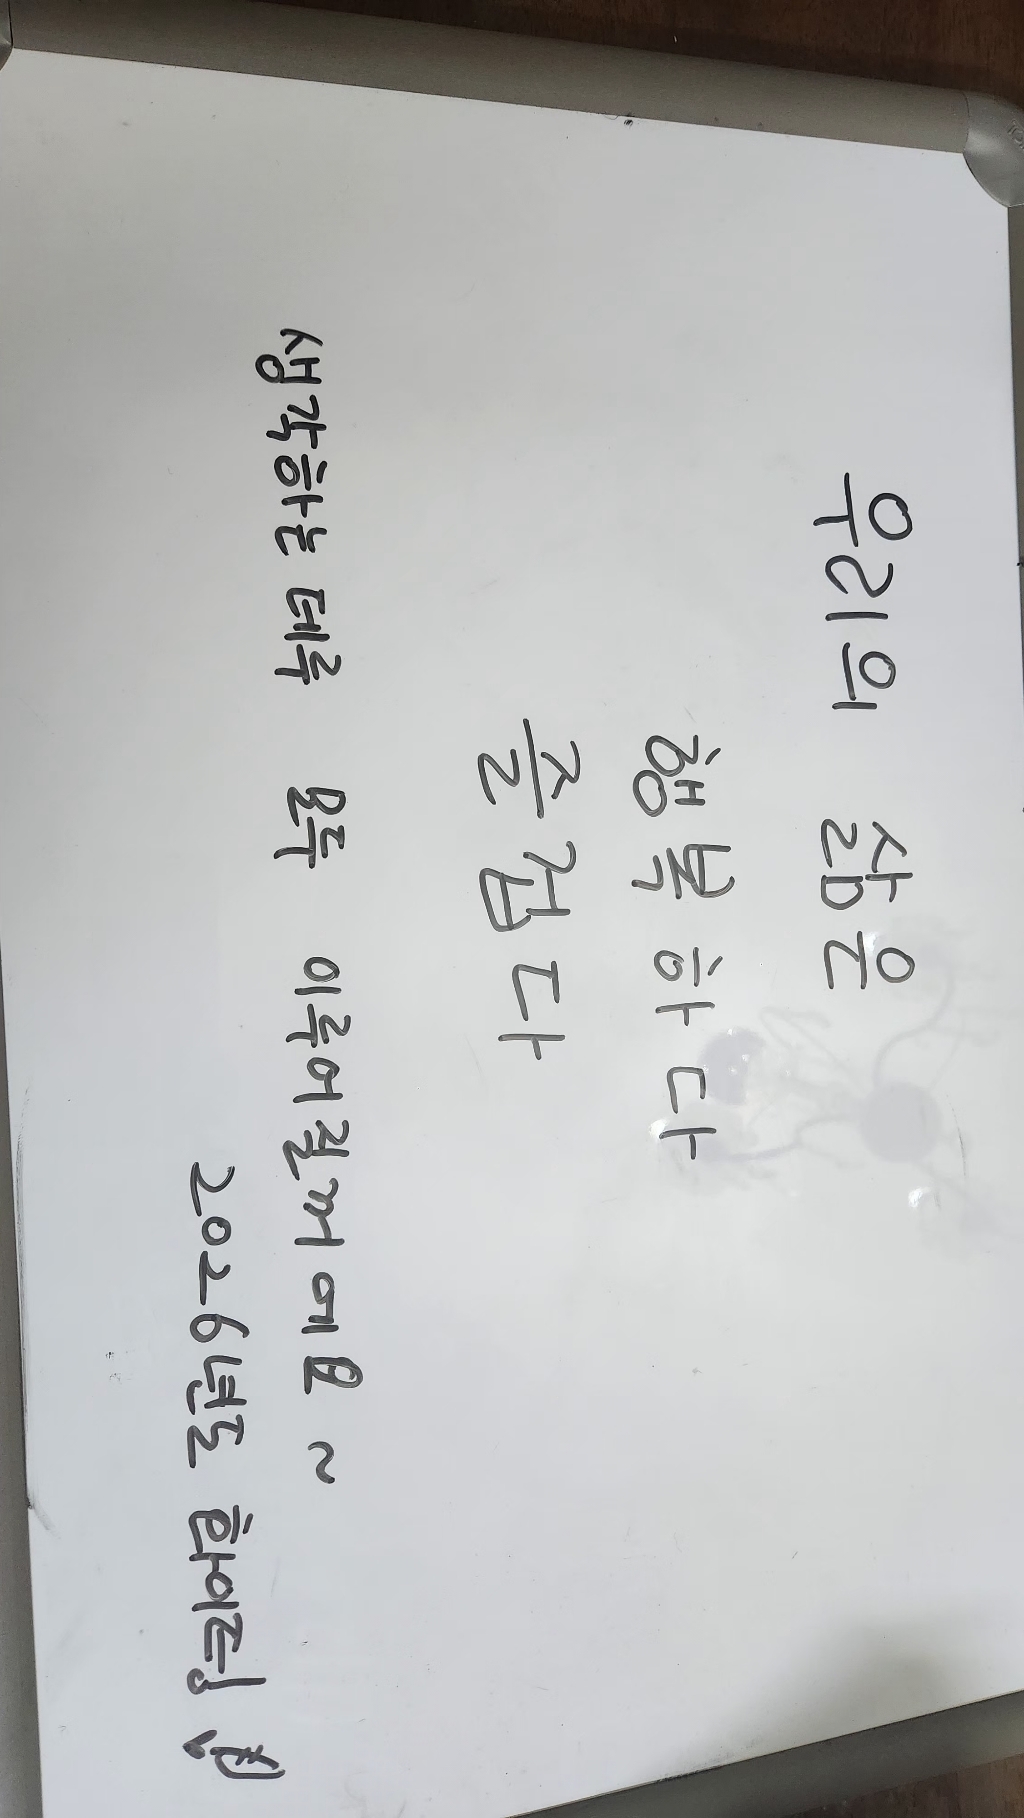 우리의 삶은
행복하다
즐겁다
생각하는 데루 모두 이루어질꺼에요~
2026년도 화이팅!!